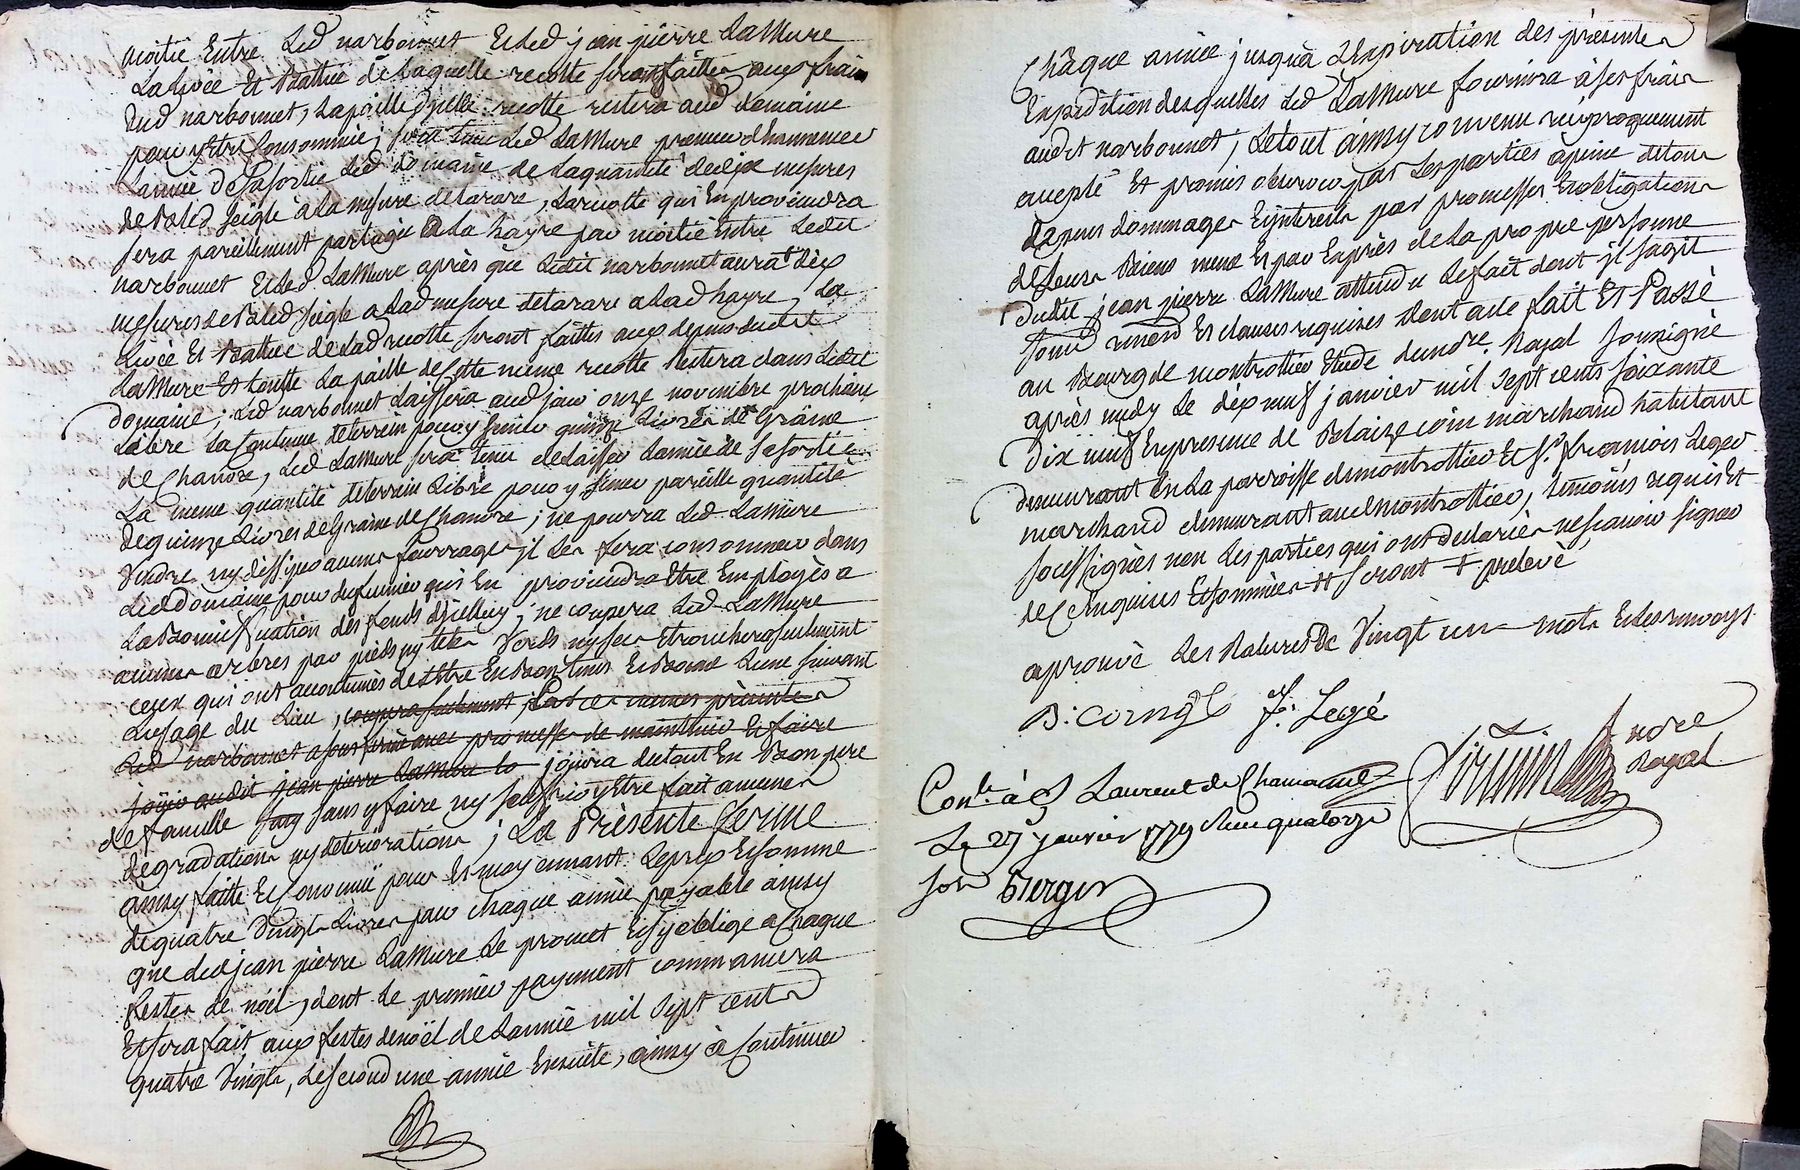 moitié Entre Led narbonnet Et Led jean pierre LaMure
La Livée Et Battue de Laquelle recolte seront faittes aux frais
dud narbonnet, La paille d'jcelle recolte restera aud domaine
pour y Etre Consommée; sera tenu Led LaMure premier d'hannencer
L'année de Sa sortie Led Domaine de La quantité de dix mesures
de Bled Seigle à La mesure de tarare, La recolte qui En proviendra
sera pareillement partagée à La hayre par moitié Entre Ledit
narbonnet Et Led LaMure après que Ledit narbonnet aura dix
mesures de Bled Seigle a Lad mesure de tarare a Lad hayre, La
Livée Et Battue de Lad recolte seront faittes aux depens dudit
LaMure Et toutte La paille de Cette meme recolte Restera dans Ledit
domaine; Led narbonnet Laissera aud jour onze novembre prochain
Libre La Contenue de terrein pour y semer quinze Livres de Graine
de Chanvre, Led LaMure sera tenu de Laisser L'année de Sa sortie
La meme quantité de terrein Libre pour y semer pareille quantité
de quinze Livres de Graine de Chanvre; ne pourra Led LaMure
Vendre ny dissiper aucuns fourrages jl Les fera consommer dans
Led domaine pour Les fumier qui En proviendra Etre Employés a
La Bonniffication des fonds d'jcelluy; ne coupera Led LaMure
aucuns arbres par pieds ny tetes Verds ny secs Etronchera seulement
ceux qui ont accoutumés de L'Etre En Bon tems Et Bonne Lune suivant
L'usage du Lieu, coupera seulement Par Les memes présentes
Led narbonnet a sous ferme avec promesse de maintenir Et faire
joüir audit jean pierre LaMure Le jojira du tout En Bon pere
de famille sans y faire ny souffrir y Etre fait aucunes
degradations ny deteriorations; La Présente ferme
ainsy faitte Et Convenüe pour Et moyennant Le prix Et somme
de quatre Vingts Livres par chaque année payable ainsy
que Led jean pierre LaMure Le promet Et s'y oblige a Chaque
festes de noël, dont Le premier payement commancera
Et sera fait aux festes de noël de L'année mil Sept cents
quatre Vingts, Le second une année Ensuite, ainsy à Continuer
Chaque année jusqu'à L'Expiration des présentes
Expedition desquelles Led LaMure fournira à ses frais
audit narbonnet, Le tout ainsy convenu réciproquement
accepté Et promis observer par Les parties à peine de tous
dépens dommages Et jnterests par promesses Et obligations
de Leurs Biens meme Et par Exprès de La propre personne
dudit jean pierre LaMure attendu Le fait dont jl s'agit
soum renon Et clauses requises Dont acte fait Et Passé
au Bourg de montrottier Etude de andre Royal soussigné
après midy Le dix neuf janvier mil Sept cents soixante
Dix neuf En presence de Blaize coing marchand habitant
demeurant En La parroisse de montrottier Et Sr. francois Leger
marchand demeurant aud montrottier, témoins requis Et
soussignés non Les parties qui ont declarées ne scavoir signer
de Ce Enquises Et sommées # seront + prelevé
aprouvé Les Ratures De Vingt un mots Et Les renvoys
B: coing Fs: Legé
André
Royal
Conle. à St Laurent de Chamousset
Le 27 janvier 1779 Reçu quatorze
sols Berger